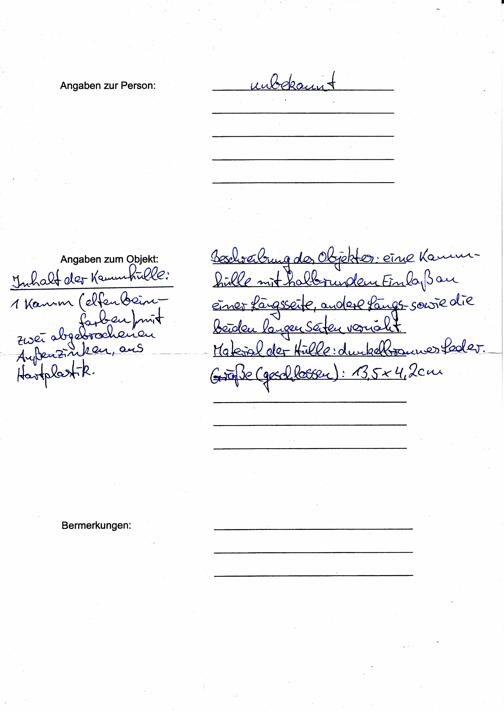 Angaben zur Person:
unbekannt
Angaben zum Objekt:
Inhalt der Kammhülle:
1 Kamm (elfenbein-
farben) mit
zwei abgebrochenen
Außenzinken, aus
Hartplastik.
Beschreibung des Objektes: eine Kamm-
hülle mit halbrundem Einlaß an
einer Längsseite, andere Längs- sowie die
beiden langen Seiten vernäht
Material der Hülle: dunkelbraunes Leder.
Größe (geschlossen): 13,5 x 4,2cm
Bermerkungen: